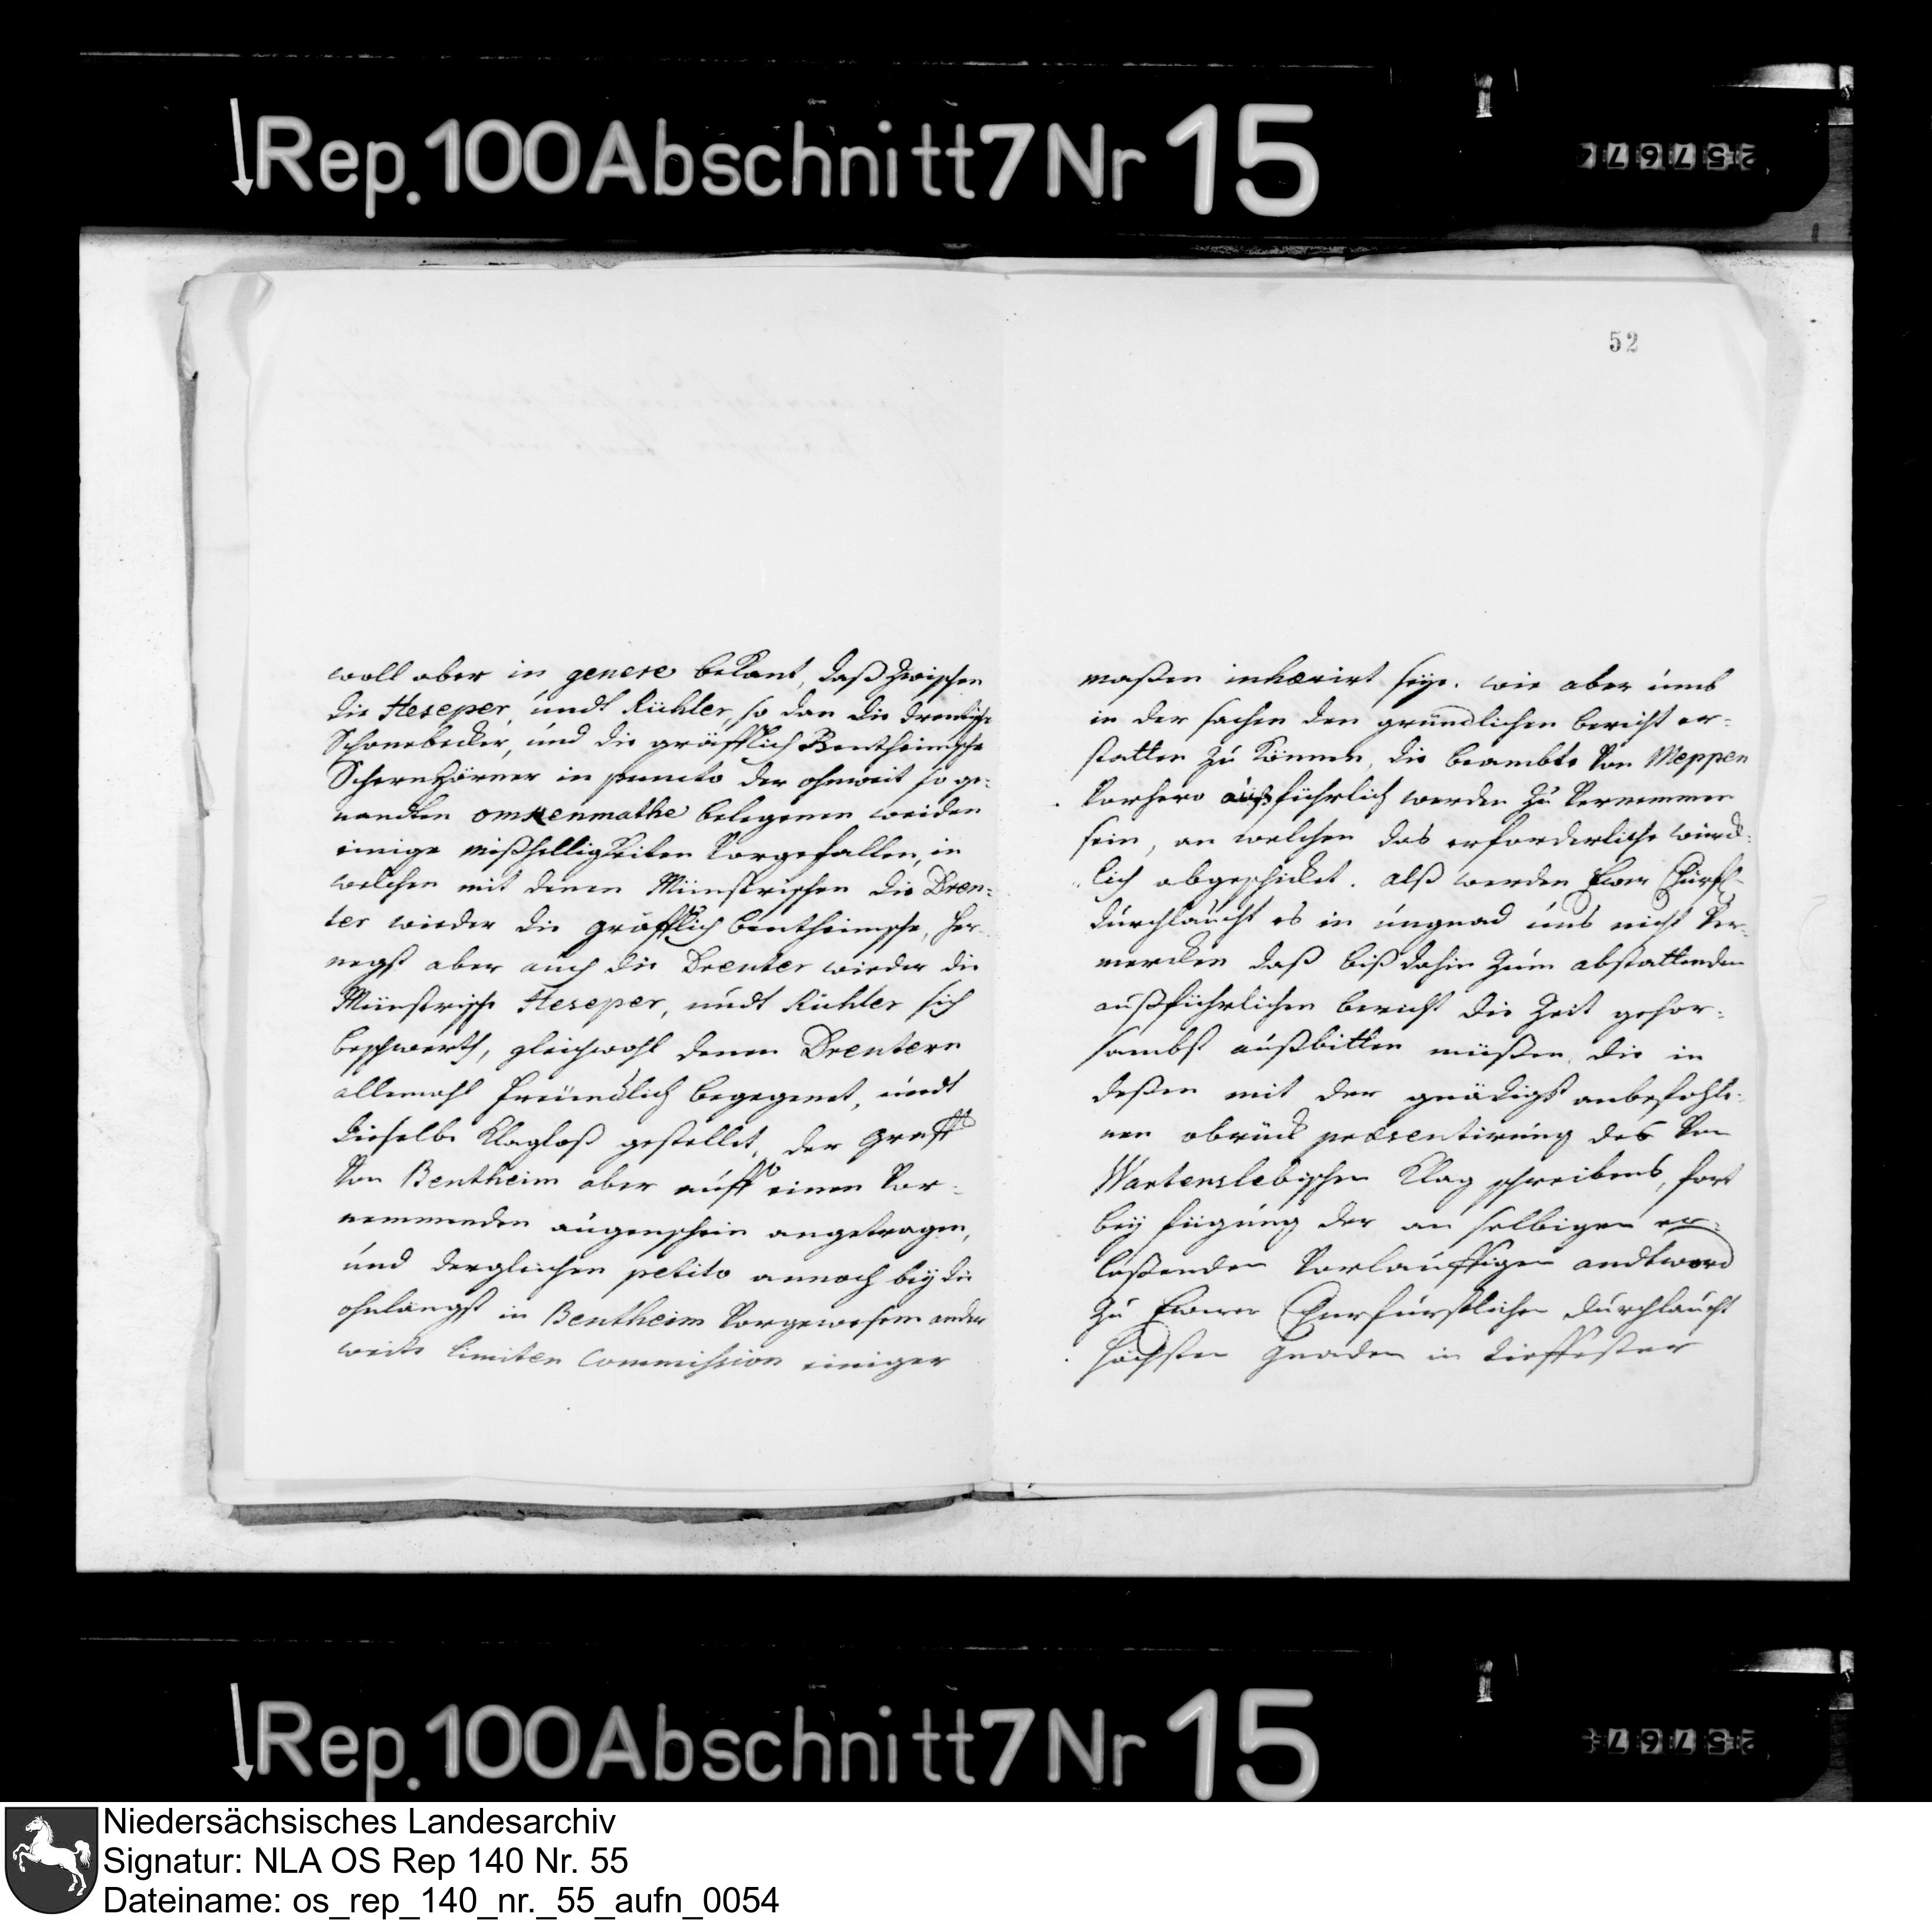 Rep.100Abschnitt7Nr 15
52
woll aber in genere bekant, daß zwischen
die Heseper, undt Rühler, so dan die drentische
Schonebecker, und die gräfflich Bentheimische
Schernhörner in puncto der ohnweit so ge-
nandten omkenmathe belegenen weiden
einige mißhelligkeiten vorgefallen, in
welchen mit denen Münstrischen die Dren-
ter wieder die gräfflich bentheimische, her-
negst aber auch die Drenter wieder die
Münstrische Heseper, undt Rühler sich
beschwerth, gleichwohl denen Drentern
allemahl freündlich begegenet, undt
dieselbe klagloß gestellet, der Graff
von Bentheim aber auff einen vor-
nemmenden augenschein angetragen,
und dergleichen petito annoch bey die
ohnlängst in Bentheim vorgewesene ander
weite limiten Commission einiger
maßen inhærirt seye. wie aber umb
in der sachen den gründlichen bericht er-
statten zu können, die beambte von Meppen
vorhero außführlich werden zu vernemmen
sein, an welchen das erforderliche würck-
lich abgeschicket. alß werden Ewer Churfl-
durchlaucht es in ungnad uns nicht ver-
mercken daß biß dahin zum abstattenden
außführlichen bericht die Zeit gehor-
sambst außbitten müßen, die in
deßen mit der gnädigst anbefohle-
nen obrück præsentirung des von
Wartenslebischen Klag schreibens, fort
bey fügung der an selbigen er-
laßenden vorlauffigen andtword
zu Ewer Churfürstlichen durchlaucht
höchsten Gnaden in tieffester
Rep.100Abschnitt7Nr 15
Niedersächsisches Landesarchiv
Signatur: NLA OS Rep 140 Nr. 55
Dateiname: os_rep_140_nr._55_aufn_0054